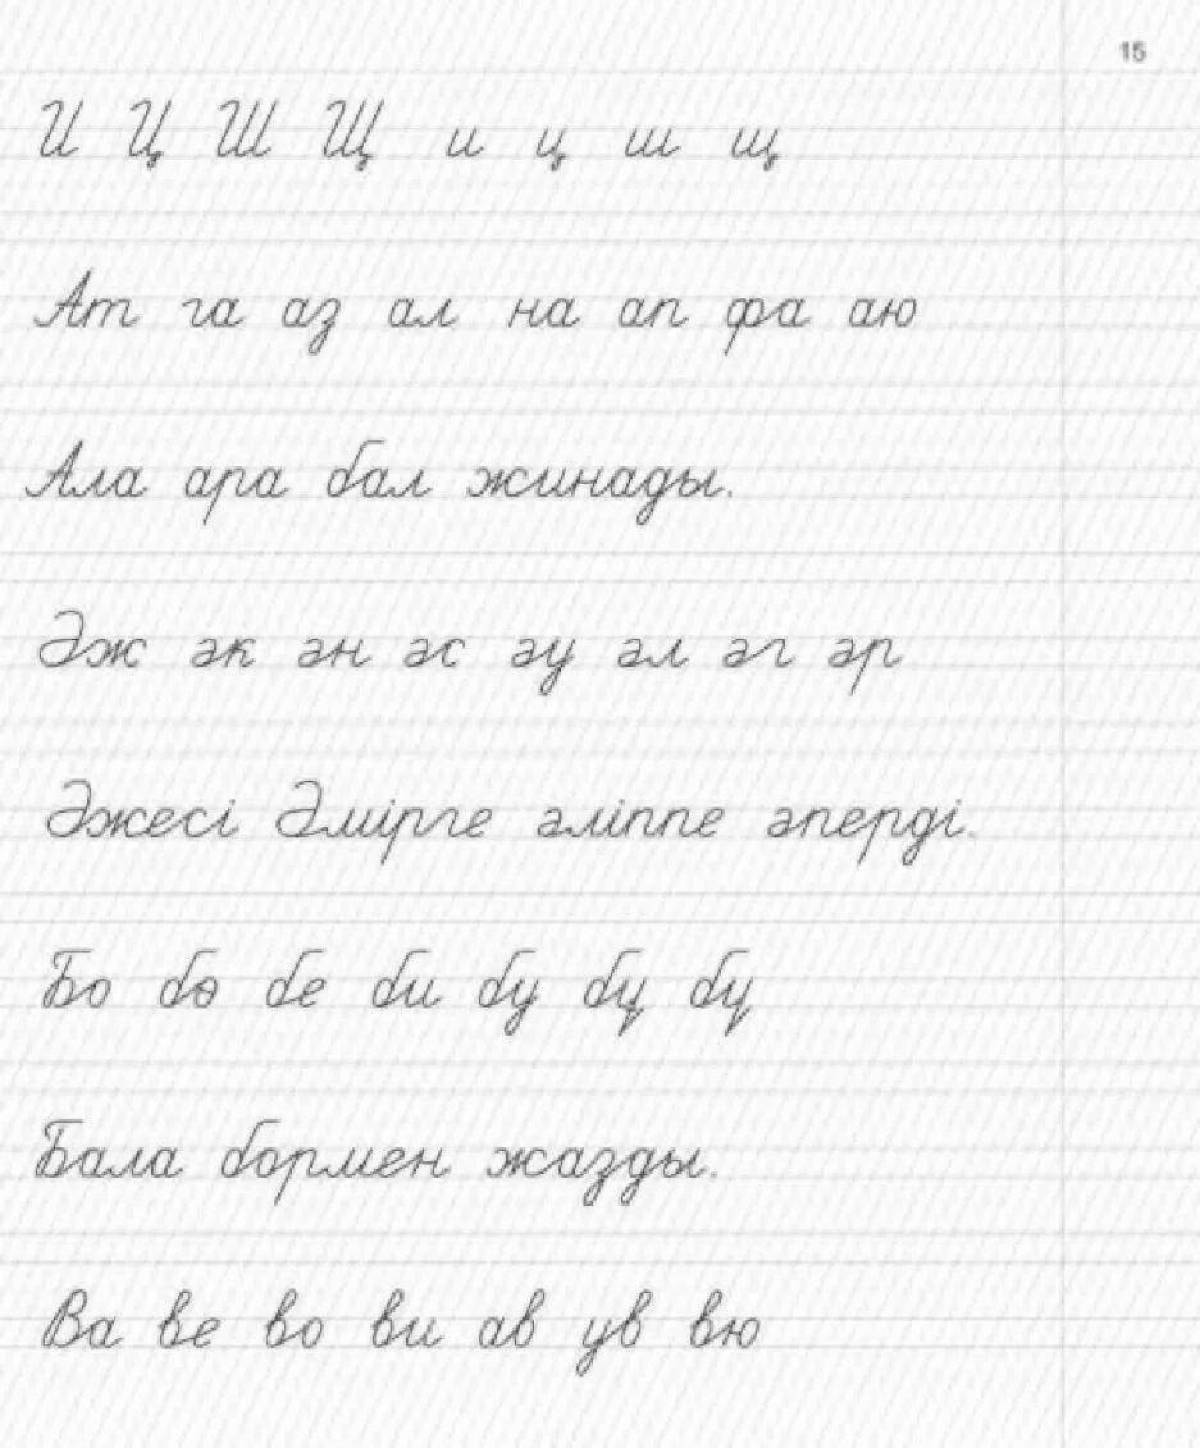 15
И Ц Ш Щ и ц ш щ
Ат га аз ал на ап фа аю
Ала ара бал жинады.
Әж әк ән әс әу әл әг әр
Әжесі Әмірге әліппе әперді.
Бо бө бе би бу бұ бү
Бала бормен жазды.
Ва ве во ви ав ув вю